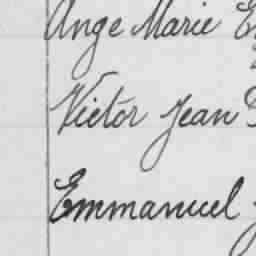 Ange Marie
Victor Jean
Emmanuel